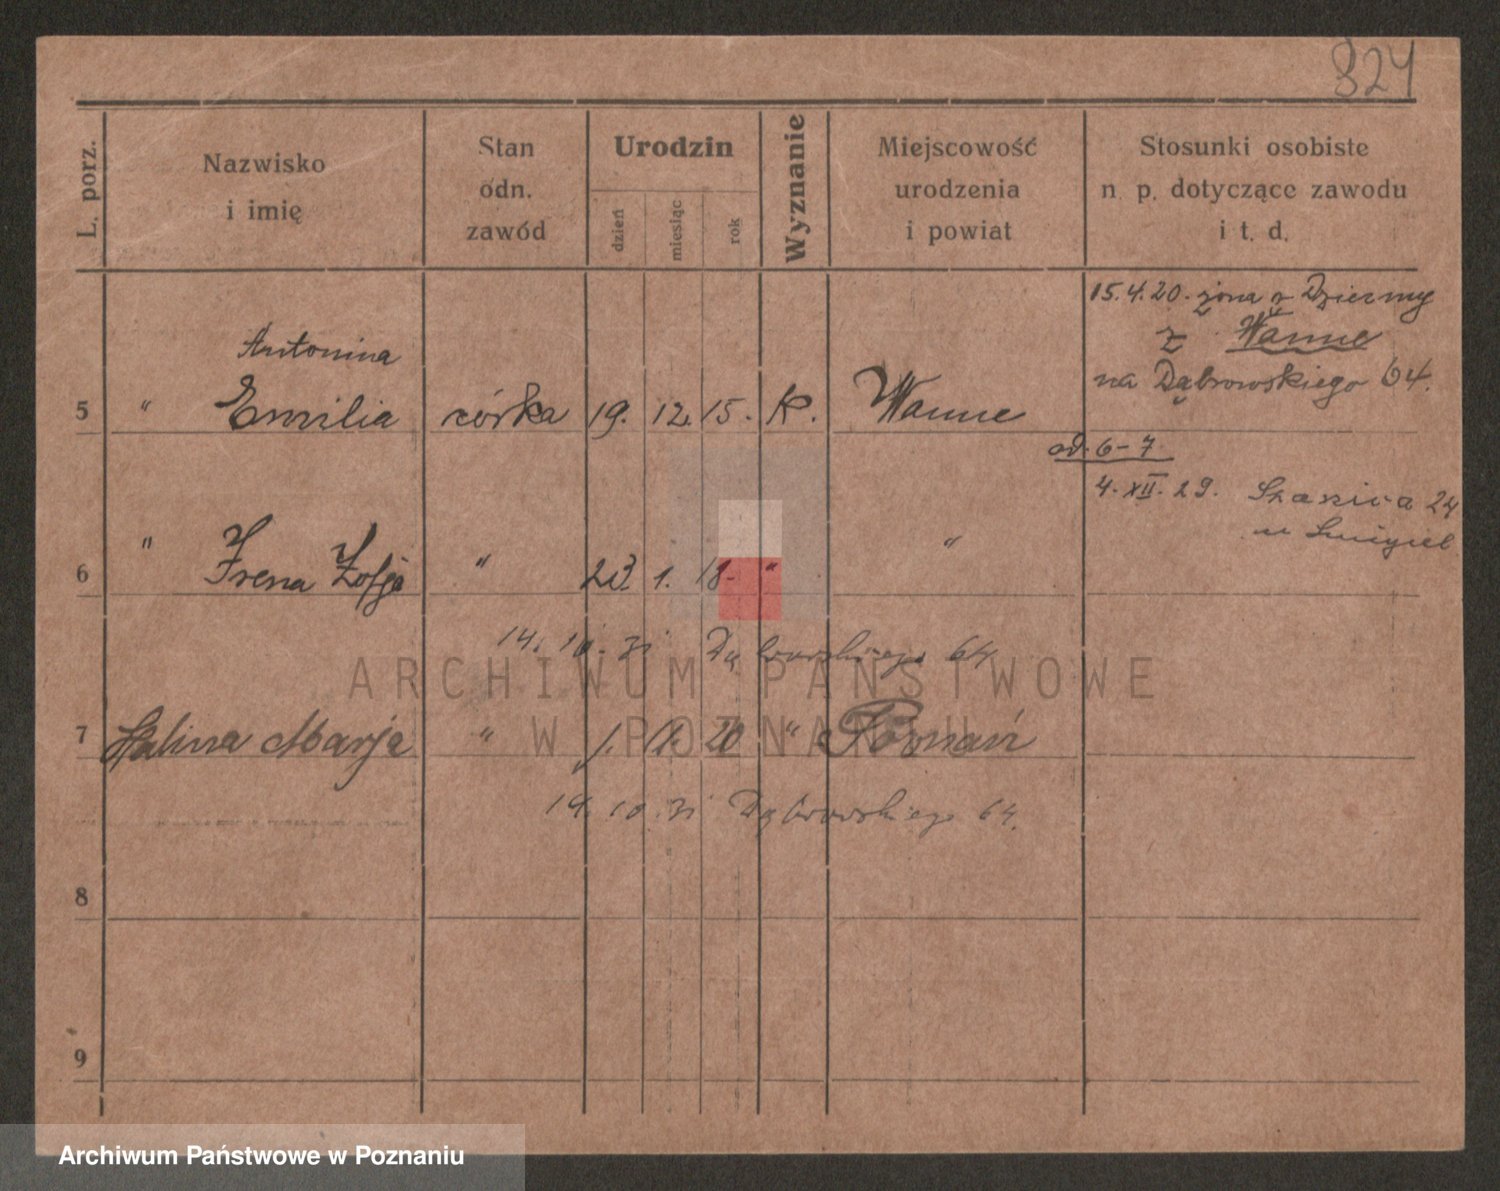 324
L. porz.
Nazwisko
i imię
Stan
odn.
zawód
Urodzin
dzień
miesiąc
rok
Wyznanie
Miejscowość
urodzenia
i powiat
Stosunki osobiste
n. p. dotyczące zawodu
i t. d.
15.4.20. żona z Dziećmy
z Wanne
na Dąbrowskiego 64.
Antonina
5 " Emilia córka 19. 12. 15. K. Wanne
od. 6-7
4. XII. 29. 24
6 " Irena Zofja " 23. 1. 18. " "
14. 10. 31 Dąbrowskiego 64
7 Halina Marja " 1. 20 " Poznań
14. 10. 31 Dąbrowskiego 64.
8
9
ARCHIWUM PAŃSTWOWE
W POZNANIU
Archiwum Państwowe w Poznaniu